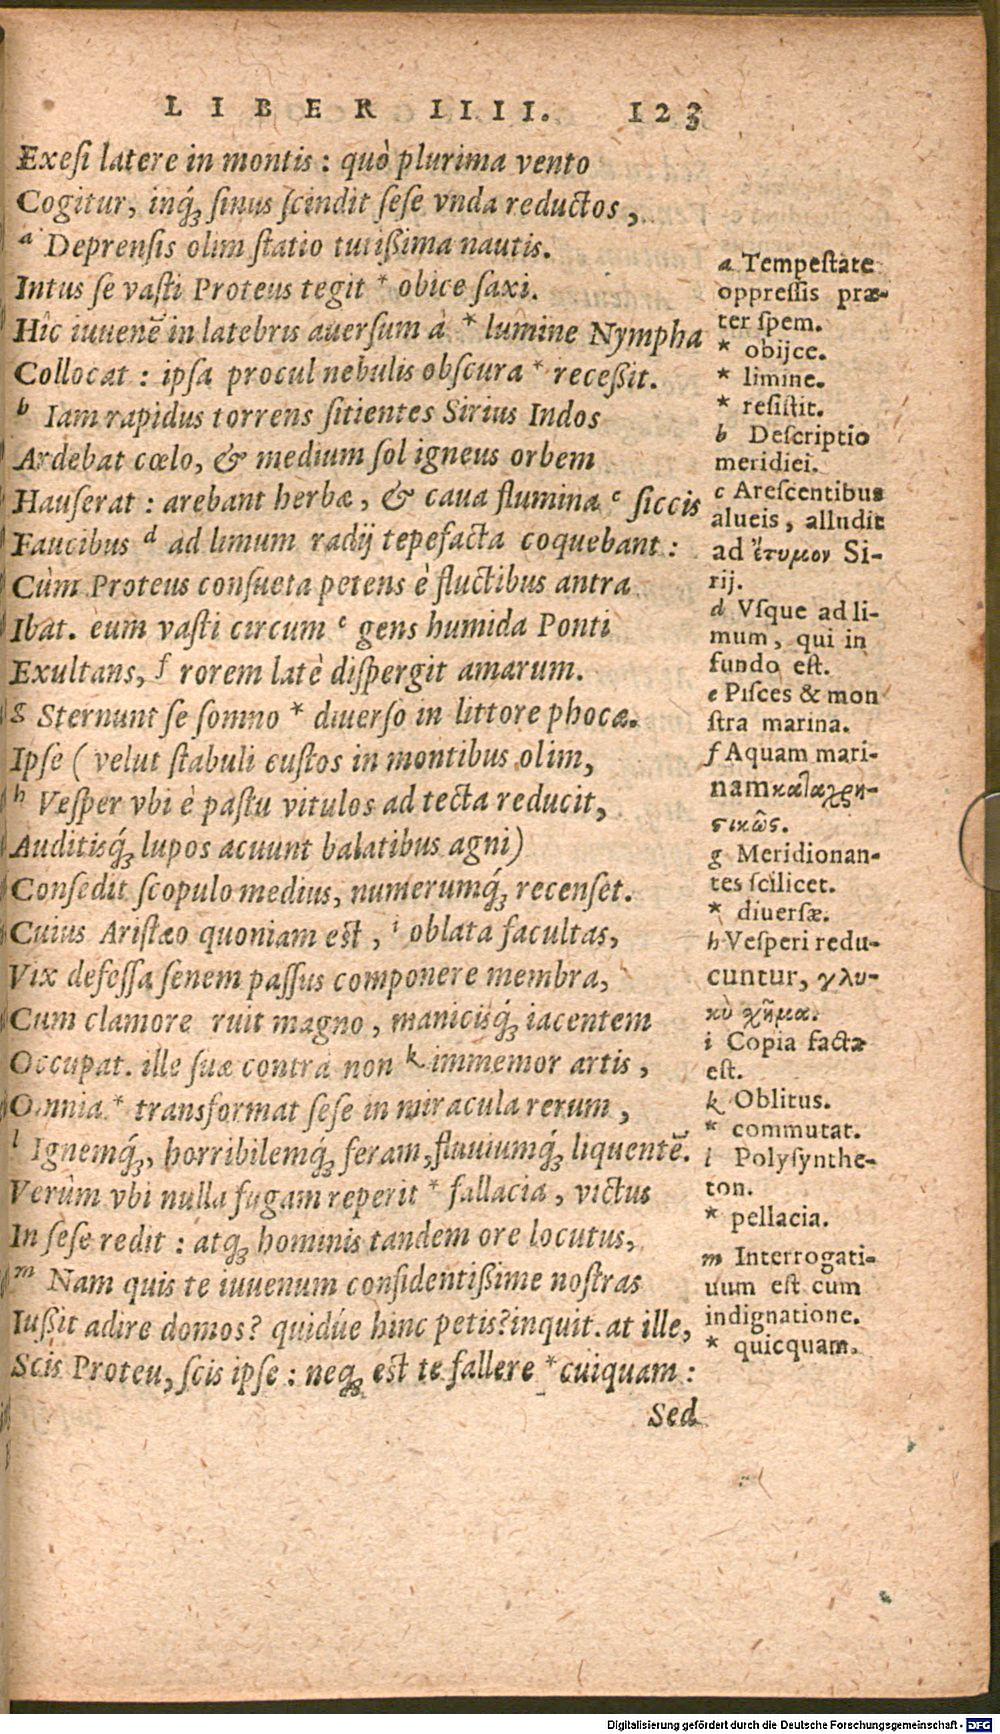 LIBER IIII. 123
Exesi latere in montis : quò plurima vento
Cogitur, inq́; sinus scindit sese vnda reductos,
a Deprensis olim statio tutißima nautis.
Intus se vasti Proteus tegit * obice saxi.
Hîc iuuenē in latebris auersum à * lumine Nympha
Collocat : ipsa procul nebulis obscura * receßit.
b Iam rapidus torrens sitientes Sirius Indos
Ardebat cœlo, & medium sol igneus orbem
Hauserat : arebant herbæ, & caua flumina c siccis
Faucibus d ad limum radij tepefacta coquebant :
Cùm Proteus consueta petens è fluctibus antra
Ibat. eum vasti circum e gens humida Ponti
Exultans, f rorem latè dispergit amarum.
g Sternunt se somno * diuerso in littore phocæ.
Ipse ( velut stabuli custos in montibus olim,
h Vesper vbi è pastu vitulos ad tecta reducit,
Auditisq́; lupos acuunt balatibus agni)
Consedit scopulo medius, numerumq́; recenset.
Cuius Aristæo quoniam est, i oblata facultas,
Vix defessa senem passus componere membra,
Cum clamore ruit magno, manicisq́; iacentem
Occupat. ille suæ contrà non k immemor artis,
Omnia * transformat sese in miracula rerum,
l Ignemq́;, horribilemq́; feram, fluuiumq́; liquentē.
Verùm vbi nulla fugam reperit * fallacia, victus
In sese redit : atq; hominis tandem ore locutus,
m Nam quis te iuuenum considentißime nostras
Iußit adire domos? quidúe hinc petis? inquit. at ille,
Scis Proteu, scis ipse : neq; est te fallere * cuiquam :
Sed
a Tempestate
oppressis præ-
ter spem.
* obijce.
* limine.
* resistit.
b Descriptio
meridiei.
c Arescentibus
alueis, alludit
ad ἔτυμον Si-
rij.
d Vsque ad li-
mum, qui in
fundo est.
e Pisces & mon
stra marina.
f Aquam mari-
nam καταχρη-
στικῶς.
g Meridionan-
tes scilicet.
* diuersæ.
h Vesperi redu-
cuntur, γλυ-
κὺ χῆμα.
i Copia facta
est.
k Oblitus.
* commutat.
l Polysynthe-
ton.
* pellacia.
m Interrogati-
uum est cum
indignatione.
* quicquam.
Digitalisierung gefördert durch die Deutsche Forschungsgemeinschaft - DFG